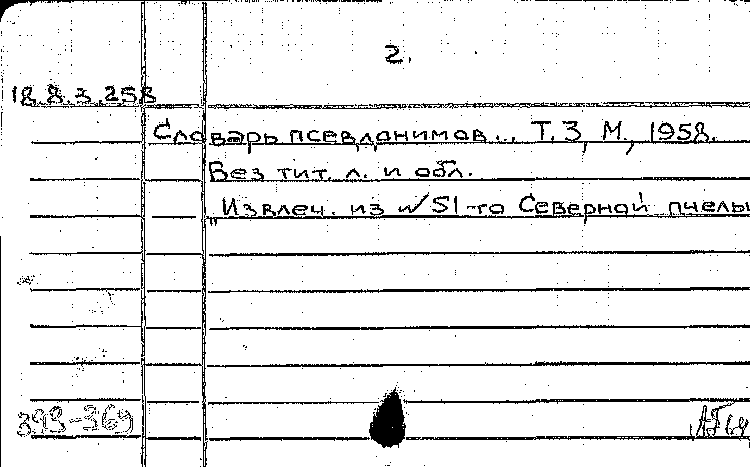 2.
18.8.3.258
Словарь псевдонимов... Т.3, М., 1958.
Без тит. л. и обл.
"Извлеч. из №51-го Северной пчелы
393-369